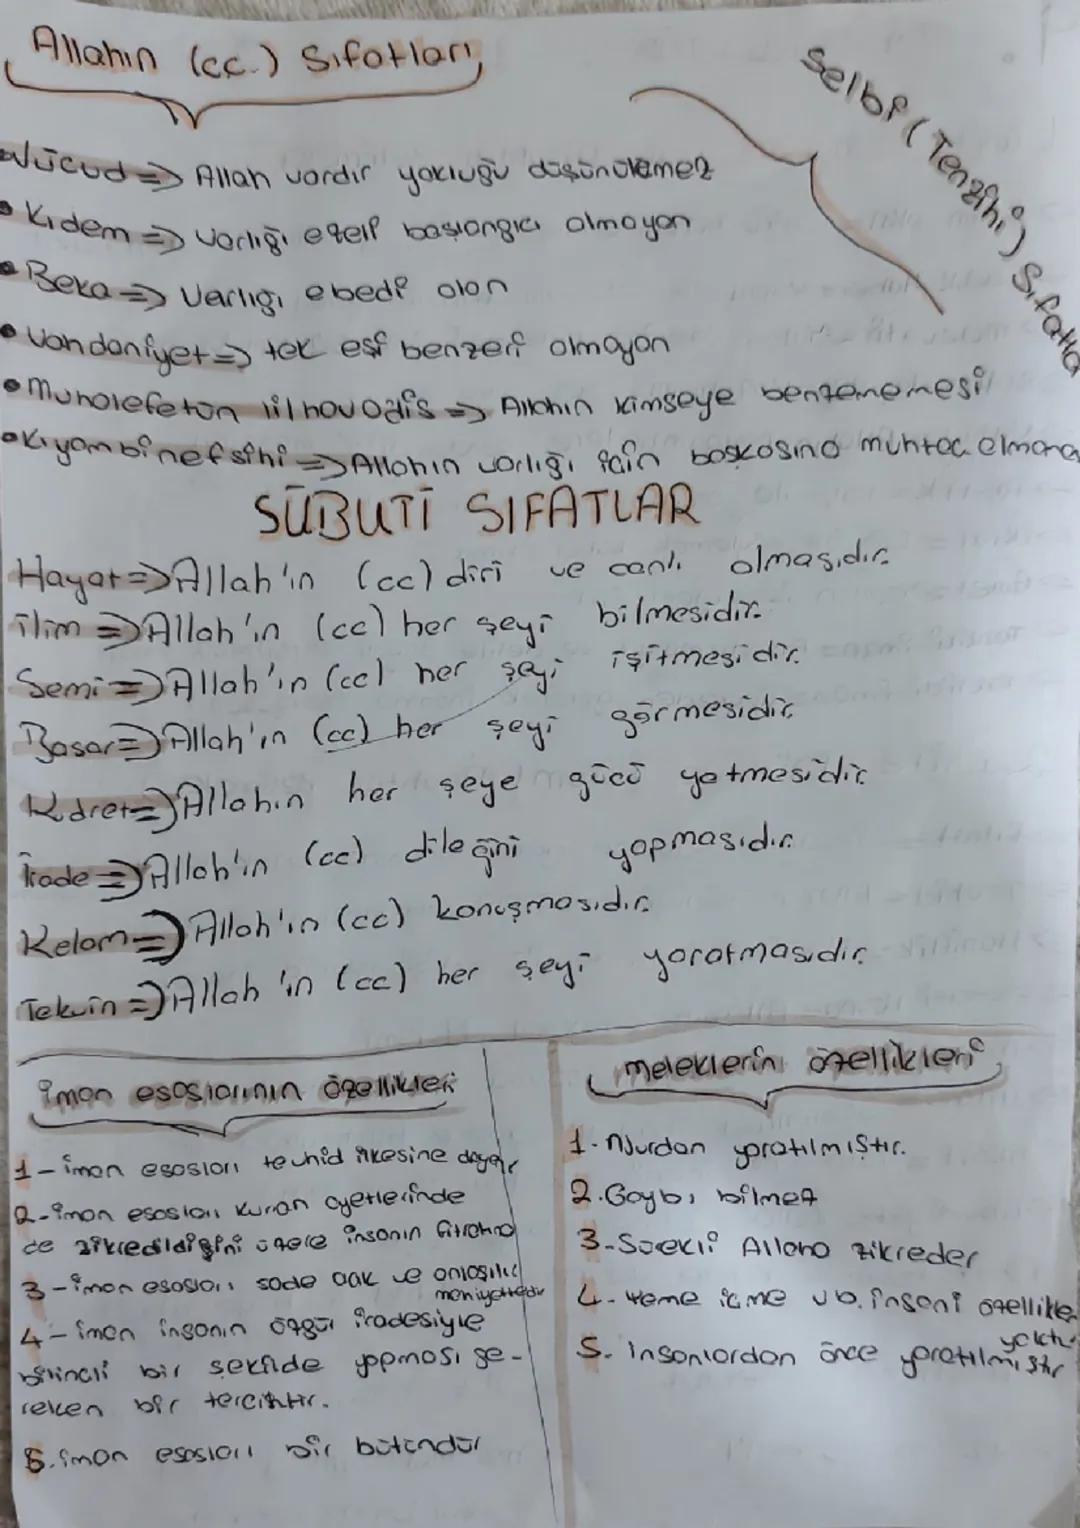 Allahın (cc.) Sıfatları
Selbî (Tenzîhî) Sıfatla
Vücud => Allah vardır yokluğu düşünülemez
Kıdem => varlığı ezelî başlangıcı olmayan
Beka => Varlığı ebedî olan
Vahdaniyet => tek eşi benzeri olmayan
Muhalefetün lil havadis => Allahın kimseye benzememesi
Kıyam bi nefsihi => Allahın varlığı için başkasına muhtaç olmama
SÜBUTİ SIFATLAR
Hayat => Allah'ın (cc) diri ve canlı olmasıdır.
ilim => Allah'ın (cc) her şeyi bilmesidir.
Semi => Allah'ın (cc) her şeyi işitmesidir.
Basar => Allah'ın (cc) her şeyi görmesidir.
Kudret => Allahın her şeye gücü yetmesidir.
İrade => Allah'ın (cc) dileğini yapmasıdır.
Kelam => Allah'ın (cc) konuşmasıdır.
Tekvin => Allah'ın (cc) her şeyi yaratmasıdır.
iman esaslarının özellikleri
1 - iman esasları tevhid ilkesine dayalır
2 - iman esasları kuran ayetlerinde
de zikredildiğini üzere insanın fıtratına
3 - iman esasları sade açık ve anlaşılır
maniyettedir
4 - iman insanın özgür iradesiyle
bilinçli bir şekilde yapması ge-
reken bir tercihtir.
5. iman esasları bir bütündür
meleklerin özellikleri
1. Nurdan yaratılmıştır.
2. Gaybı bilmez
3. Sürekli Allaha zikreder
4. Yeme içme vb. insani özellikle
yoktu
5. insanlardan önce yaratılmıştır